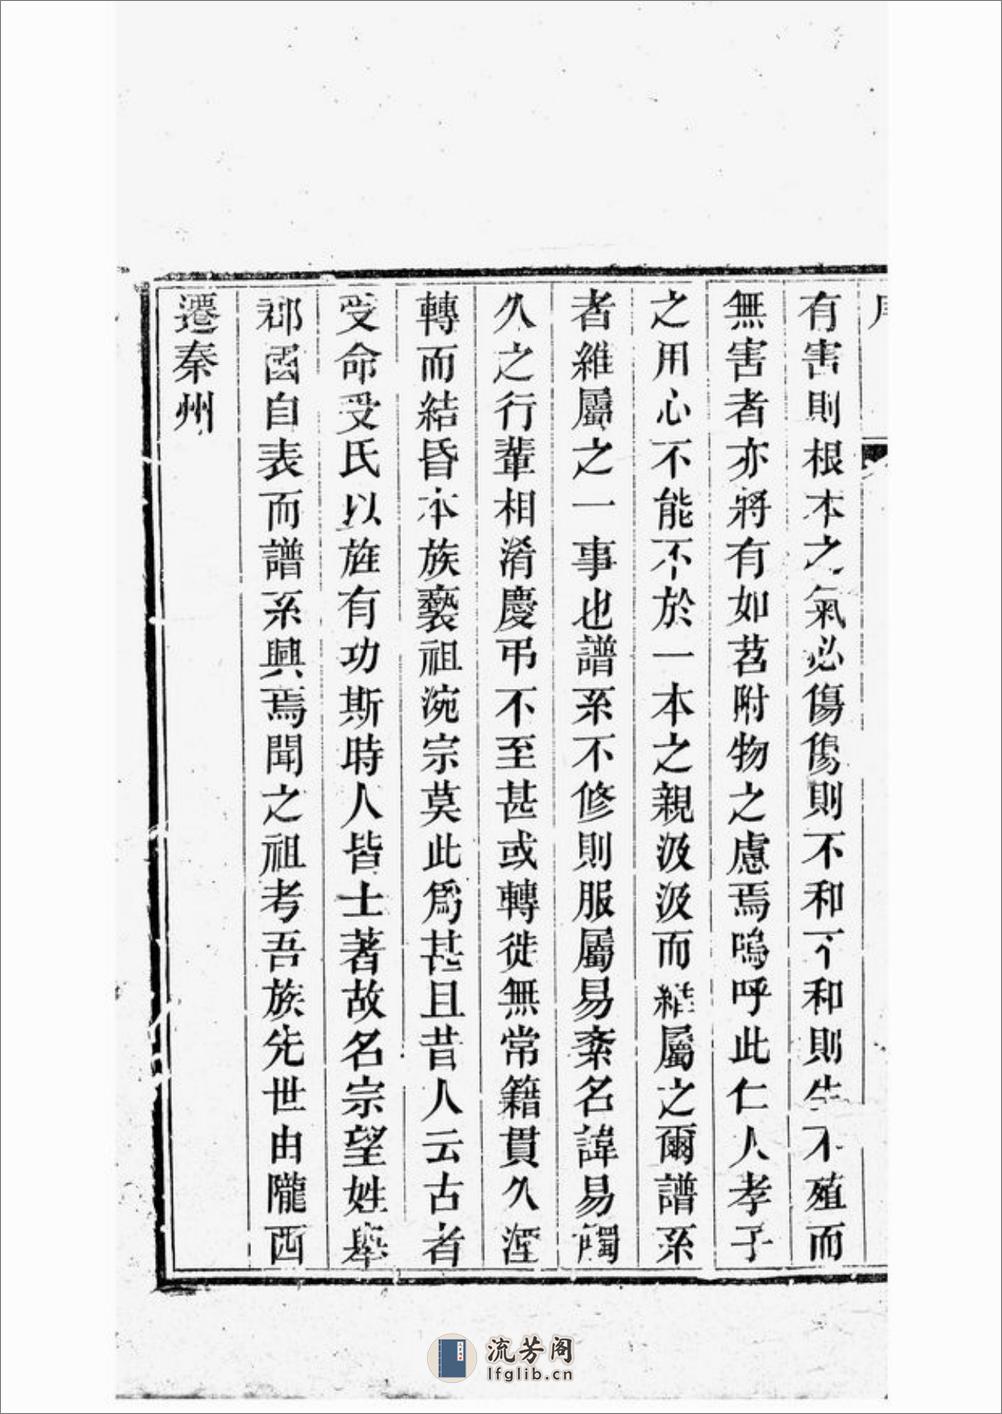 有害則根本之氣必傷傷則不和不和則生不殖而
無害者亦將有如苕附物之慮焉嗚呼此仁人孝子
之用心不能不於一本之親汲汲而維屬之爾譜系
者維屬之一事也譜系不修則服屬易紊名諱易觸
久之行輩相淆慶弔不至甚或轉徙無常籍貫久湮
轉而結昏本族褻祖涴宗莫此為甚且昔人云古者
受命受氏以旌有功斯時人皆土著故名宗望姓舉
郡國自表而譜系興焉聞之祖考吾族先世由隴西
遷秦州
流芳阁
lfglib.cn